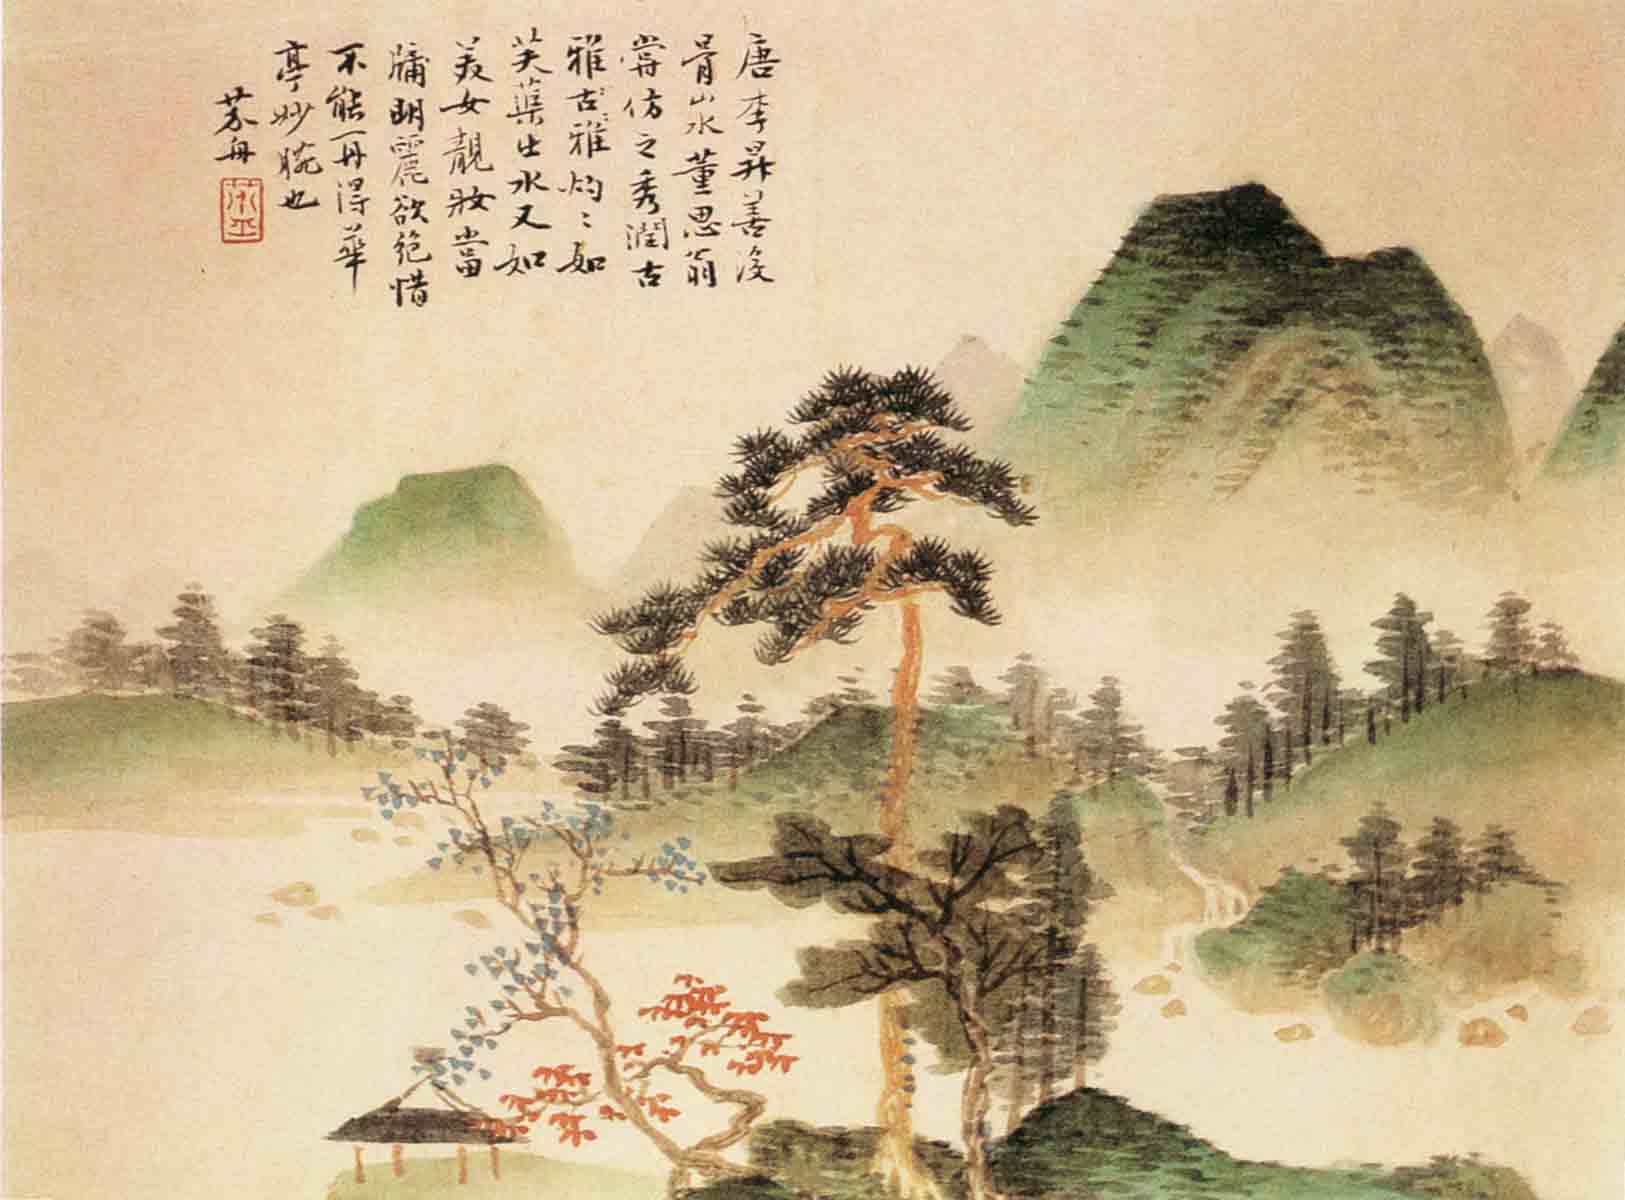 唐李昇善没
骨山水董思翁
嘗仿之秀潤古
雅古雅灼〻如
芙蕖出水又如
美女靚妝當
牖明麗欲絕惜
不能再得華
亭妙腕也
芥舟